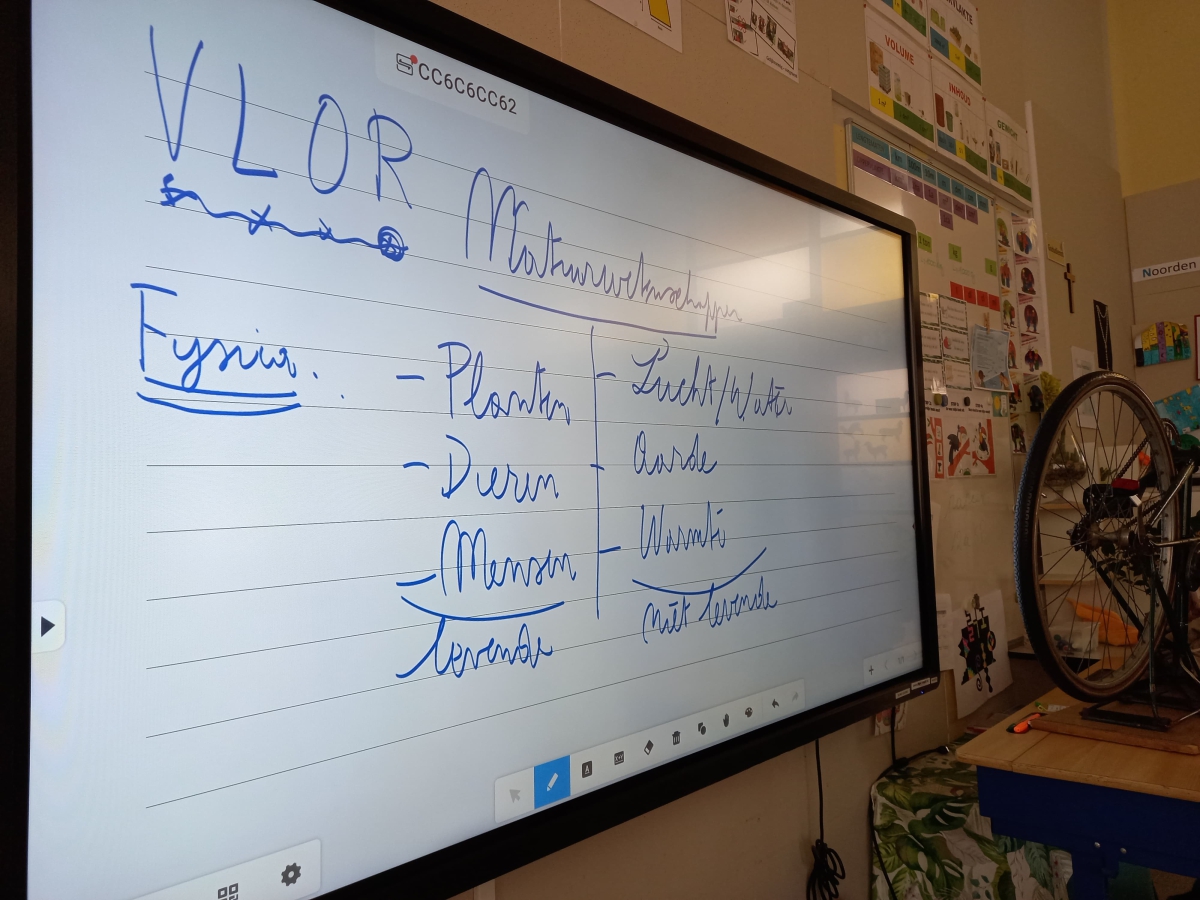 CC6C6CC62
VLOR
Natuurwetenschappen
Fysica.
- Planten
- Dieren
- Mensen
levende
- Lucht/Water
- Aarde
- Warmte
niet levende
VOLUME
INHOUD
GEWICHT
Noorden